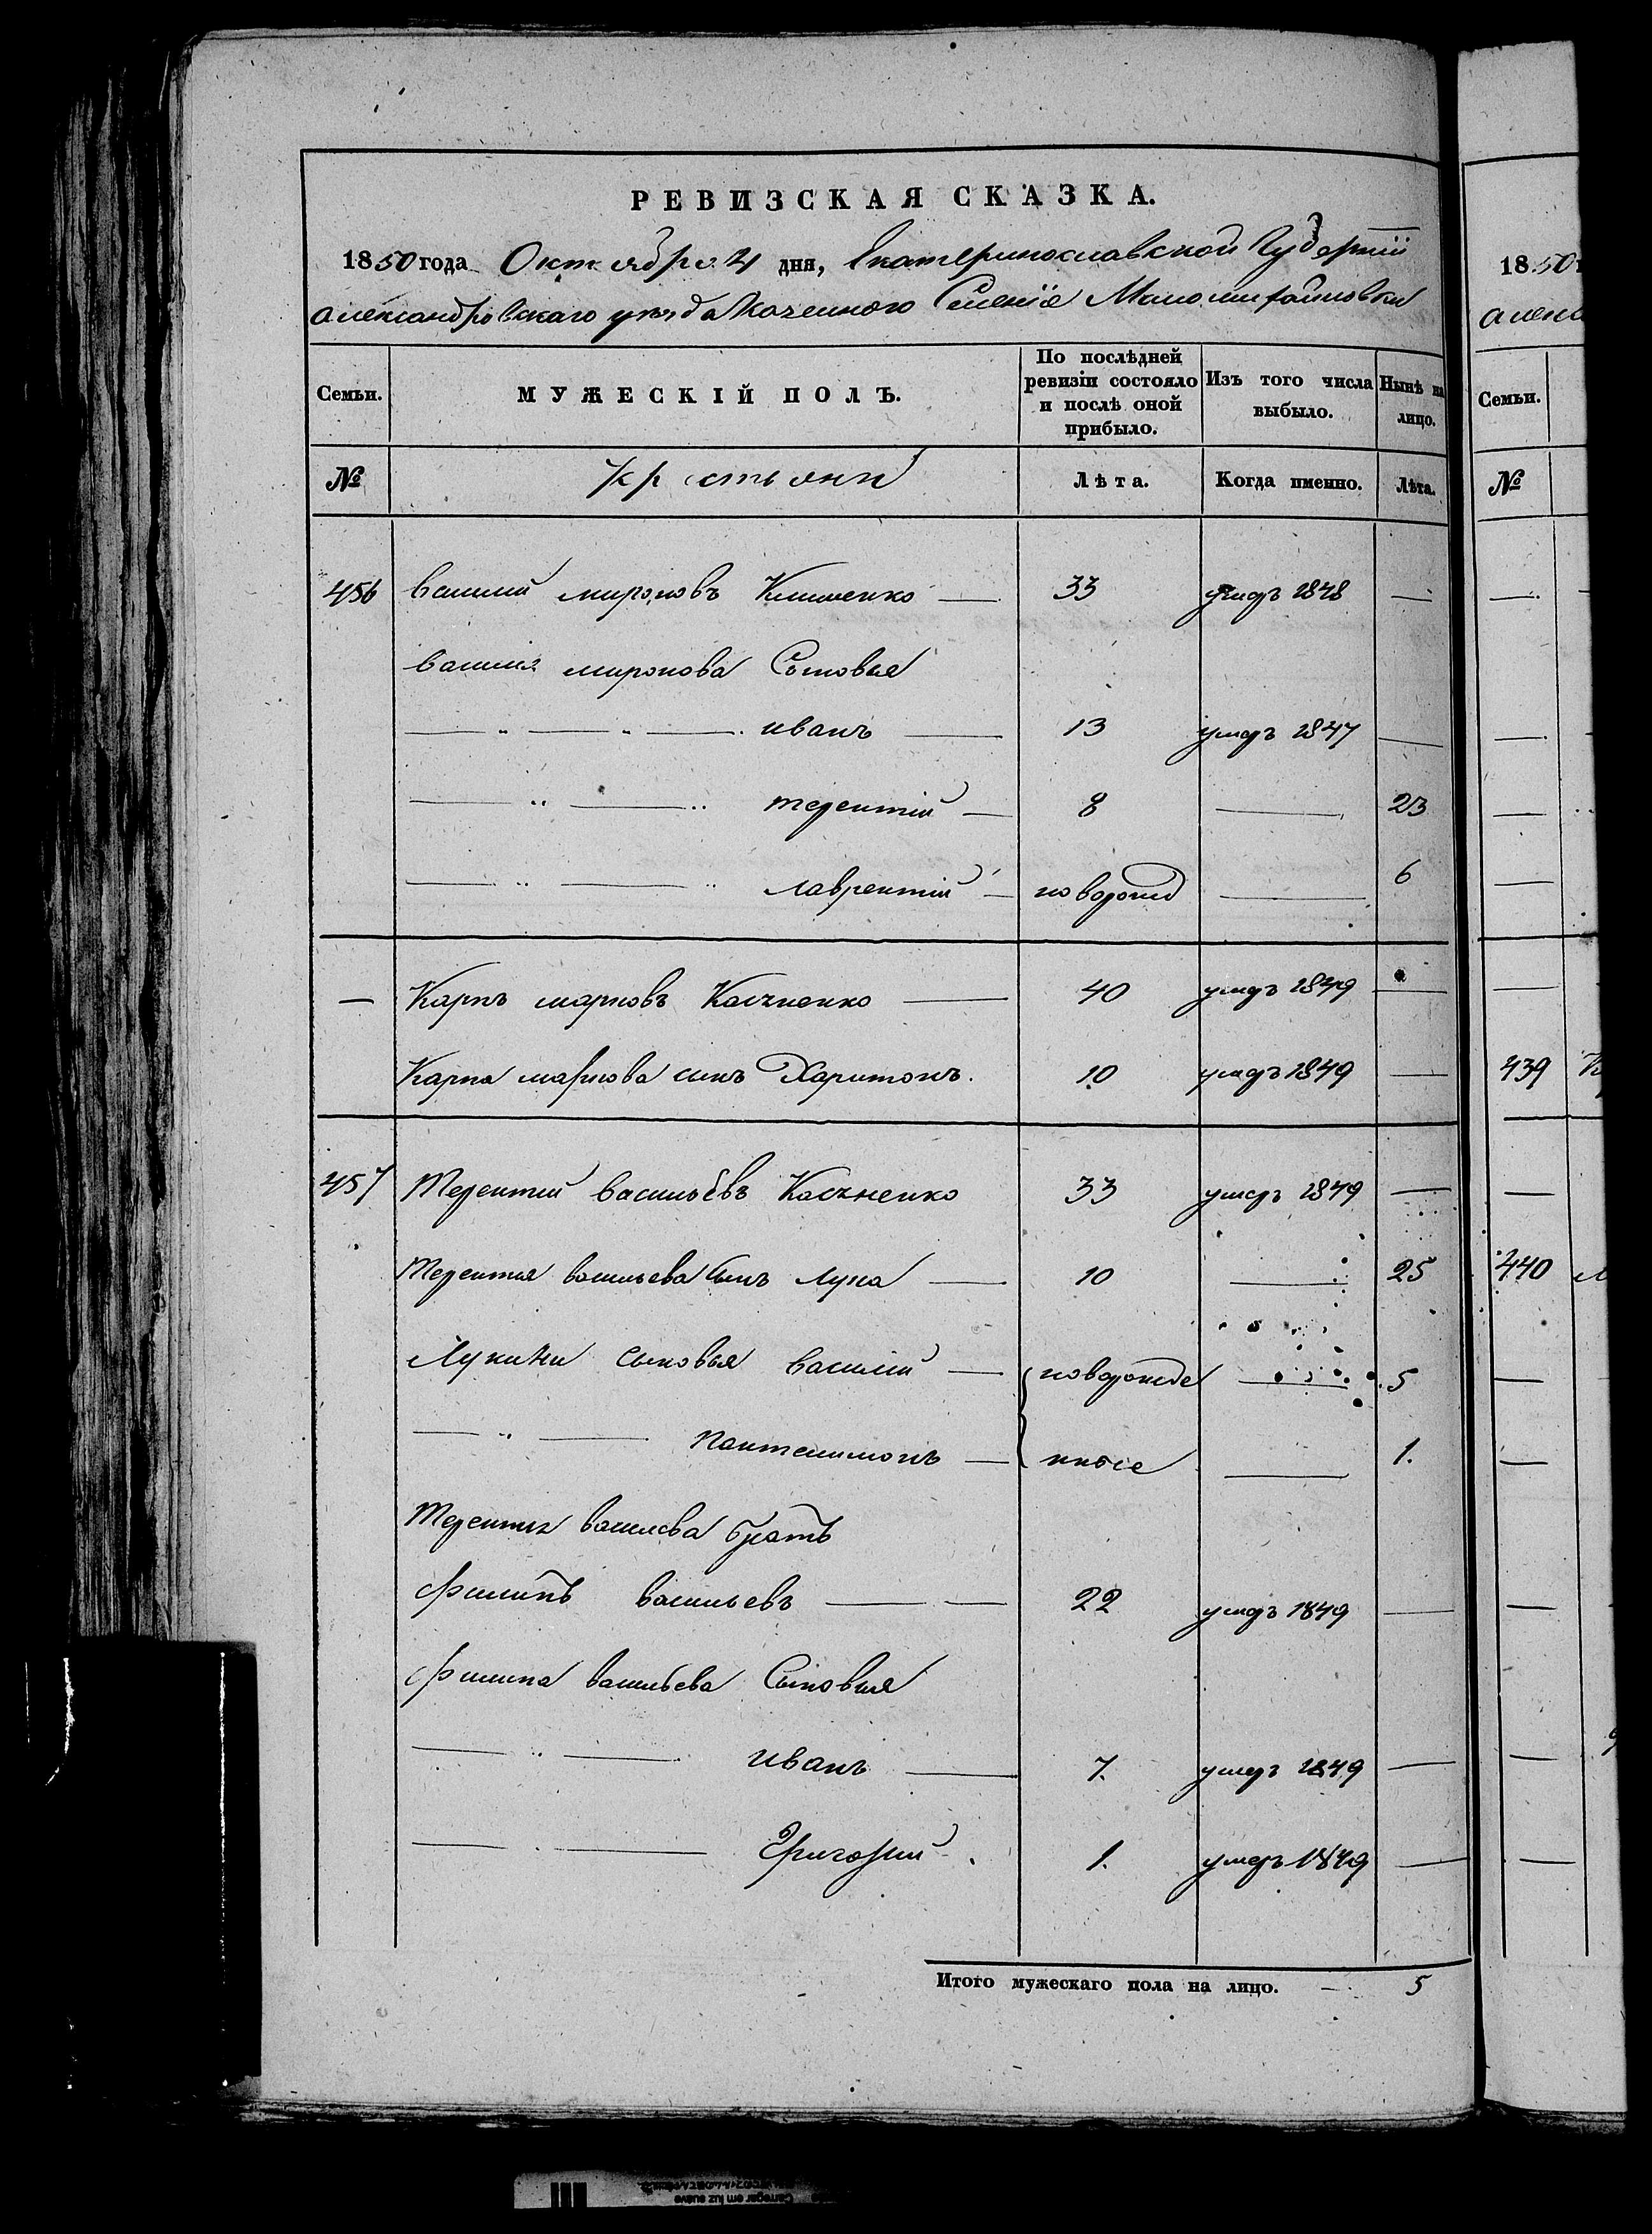 РЕВИЗСКАЯ СКАЗКА.
1850 года Октября 4 дня, Екатеринославской Губерніи
Александровскаго уѣзда Казенного Селенія Маломихайловки
Семьи. МУЖЕСКІЙ ПОЛЪ. По послѣдней ревизіи состояло и послѣ оной прибыло. Изъ того числа выбыло. Нынѣ на лицо.
№ крестьяни Лѣта. Когда именно. Лѣта.
456 Василій мироновъ Клименко — 33 умеръ 1848 —
Василія миронова Сыновья
— " — " — иванъ — 13 умеръ 1847 —
— " — " терентій — 8 — 23
— " — " лаврентій — новорожд — 6
— Карпъ марковъ — 40 умеръ 1849 —
Карпа маркова сынъ Харитонъ. 10 умеръ 1849 —
457 Терентий васильевъ 33 умеръ 1849 —
Терентия васильева сынъ лука — 10 — 25
Лукини сыновья василій — новорожде — 5
— " — пантелимонъ — нные — 1.
Терентия василева братъ
Филипъ васильевъ — — 22 умеръ 1849 —
Филипа васильева Сыновья
— " — иванъ — 7. умеръ 1849 —
— " — Григорий 1. умеръ 1849 —
Итого мужескаго пола на лицо. — 5
1850
Алекс
Семьи.
№
439
440